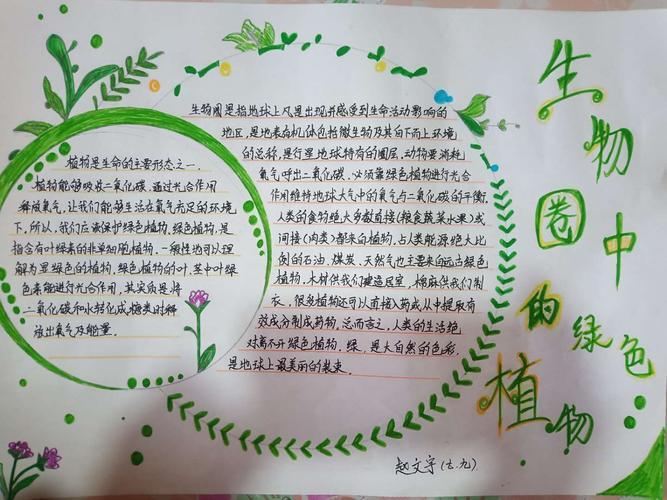 生物圈中的绿色植物
植物是生命的主要形态之一,
植物能够吸收二氧化碳,通过光合作用
释放氧气,让我们能够生活在氧气充足的环境
下,所以,我们应该保护绿色植物,绿色植物,是
指含有叶绿素的非单细胞植物,一般性地可以理
解为是绿色的植物,绿色植物的叶,茎中叶绿
色素能进行光合作用,其实质是将
二氧化碳和水转化成糖类对释
放出氧气及能量.
生物圈是指地球上凡是出现并感受到生命活动影响的
地区,是地表有机体包括微生物及其自下而上环境
的总称,是行星地球特有的圈层,动物要消耗
氧气呼出二氧化碳,必须靠绿色植物进行光合
作用维持地球大气中的氧气与二氧化碳的平衡,
人类的食物绝大多数直接(粮食蔬菜水果)或
间接(肉类)都来自植物,占人类能源绝大比
例的石油,煤炭,天然气也主要来自远古绿色
植物,木材供我们建造居室,棉麻供我们制
衣,很多植物还可以直接入药或从中提取有
效成分制成药物,总而言之,人类的生活绝
对离不开绿色植物,绿,是大自然的色彩,
是地球上最美丽的装束.
赵文宇(七.九)